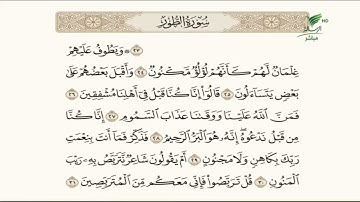 سُورَةُ الطُّورِ
HD
مباشر
٢٣ ۞ وَيَطُوفُ عَلَيْهِمْ
غِلْمَانٌ لَّهُمْ كَأَنَّهُمْ لُؤْلُؤٌ مَّكْنُونٌ ٢٤ وَأَقْبَلَ بَعْضُهُمْ عَلَىٰ
بَعْضٍ يَتَسَآءَلُونَ ٢٥ قَالُوٓا۟ إِنَّا كُنَّا قَبْلُ فِىٓ أَهْلِنَا مُشْفِقِينَ ٢٦
فَمَنَّ ٱللَّهُ عَلَيْنَا وَوَقَىٰنَا عَذَابَ ٱلسَّمُومِ ٢٧ إِنَّا كُنَّا
مِن قَبْلُ نَدْعُوهُ ۖ إِنَّهُۥ هُوَ ٱلْبَرُّ ٱلرَّحِيمُ ٢٨ فَذَكِّرْ فَمَآ أَنتَ بِنِعْمَتِ
رَبِّكَ بِكَاهِنٍ وَلَا مَجْنُونٍ ٢٩ أَمْ يَقُولُونَ شَاعِرٌ نَّتَرَبَّصُ بِهِۦ رَيْبَ
ٱلْمَنُونِ ٣٠ قُلْ تَرَبَّصُوا۟ فَإِنِّى مَعَكُم مِّنَ ٱلْمُتَرَبِّصِينَ ٣١